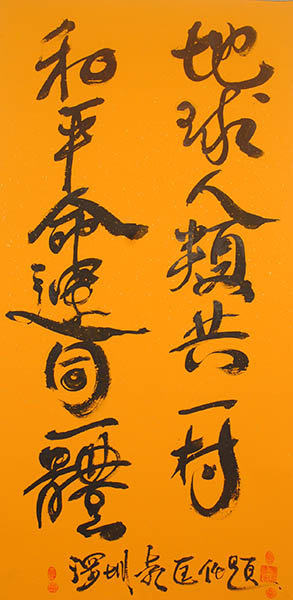 地球人類共一村
和平命運同一體
深圳題